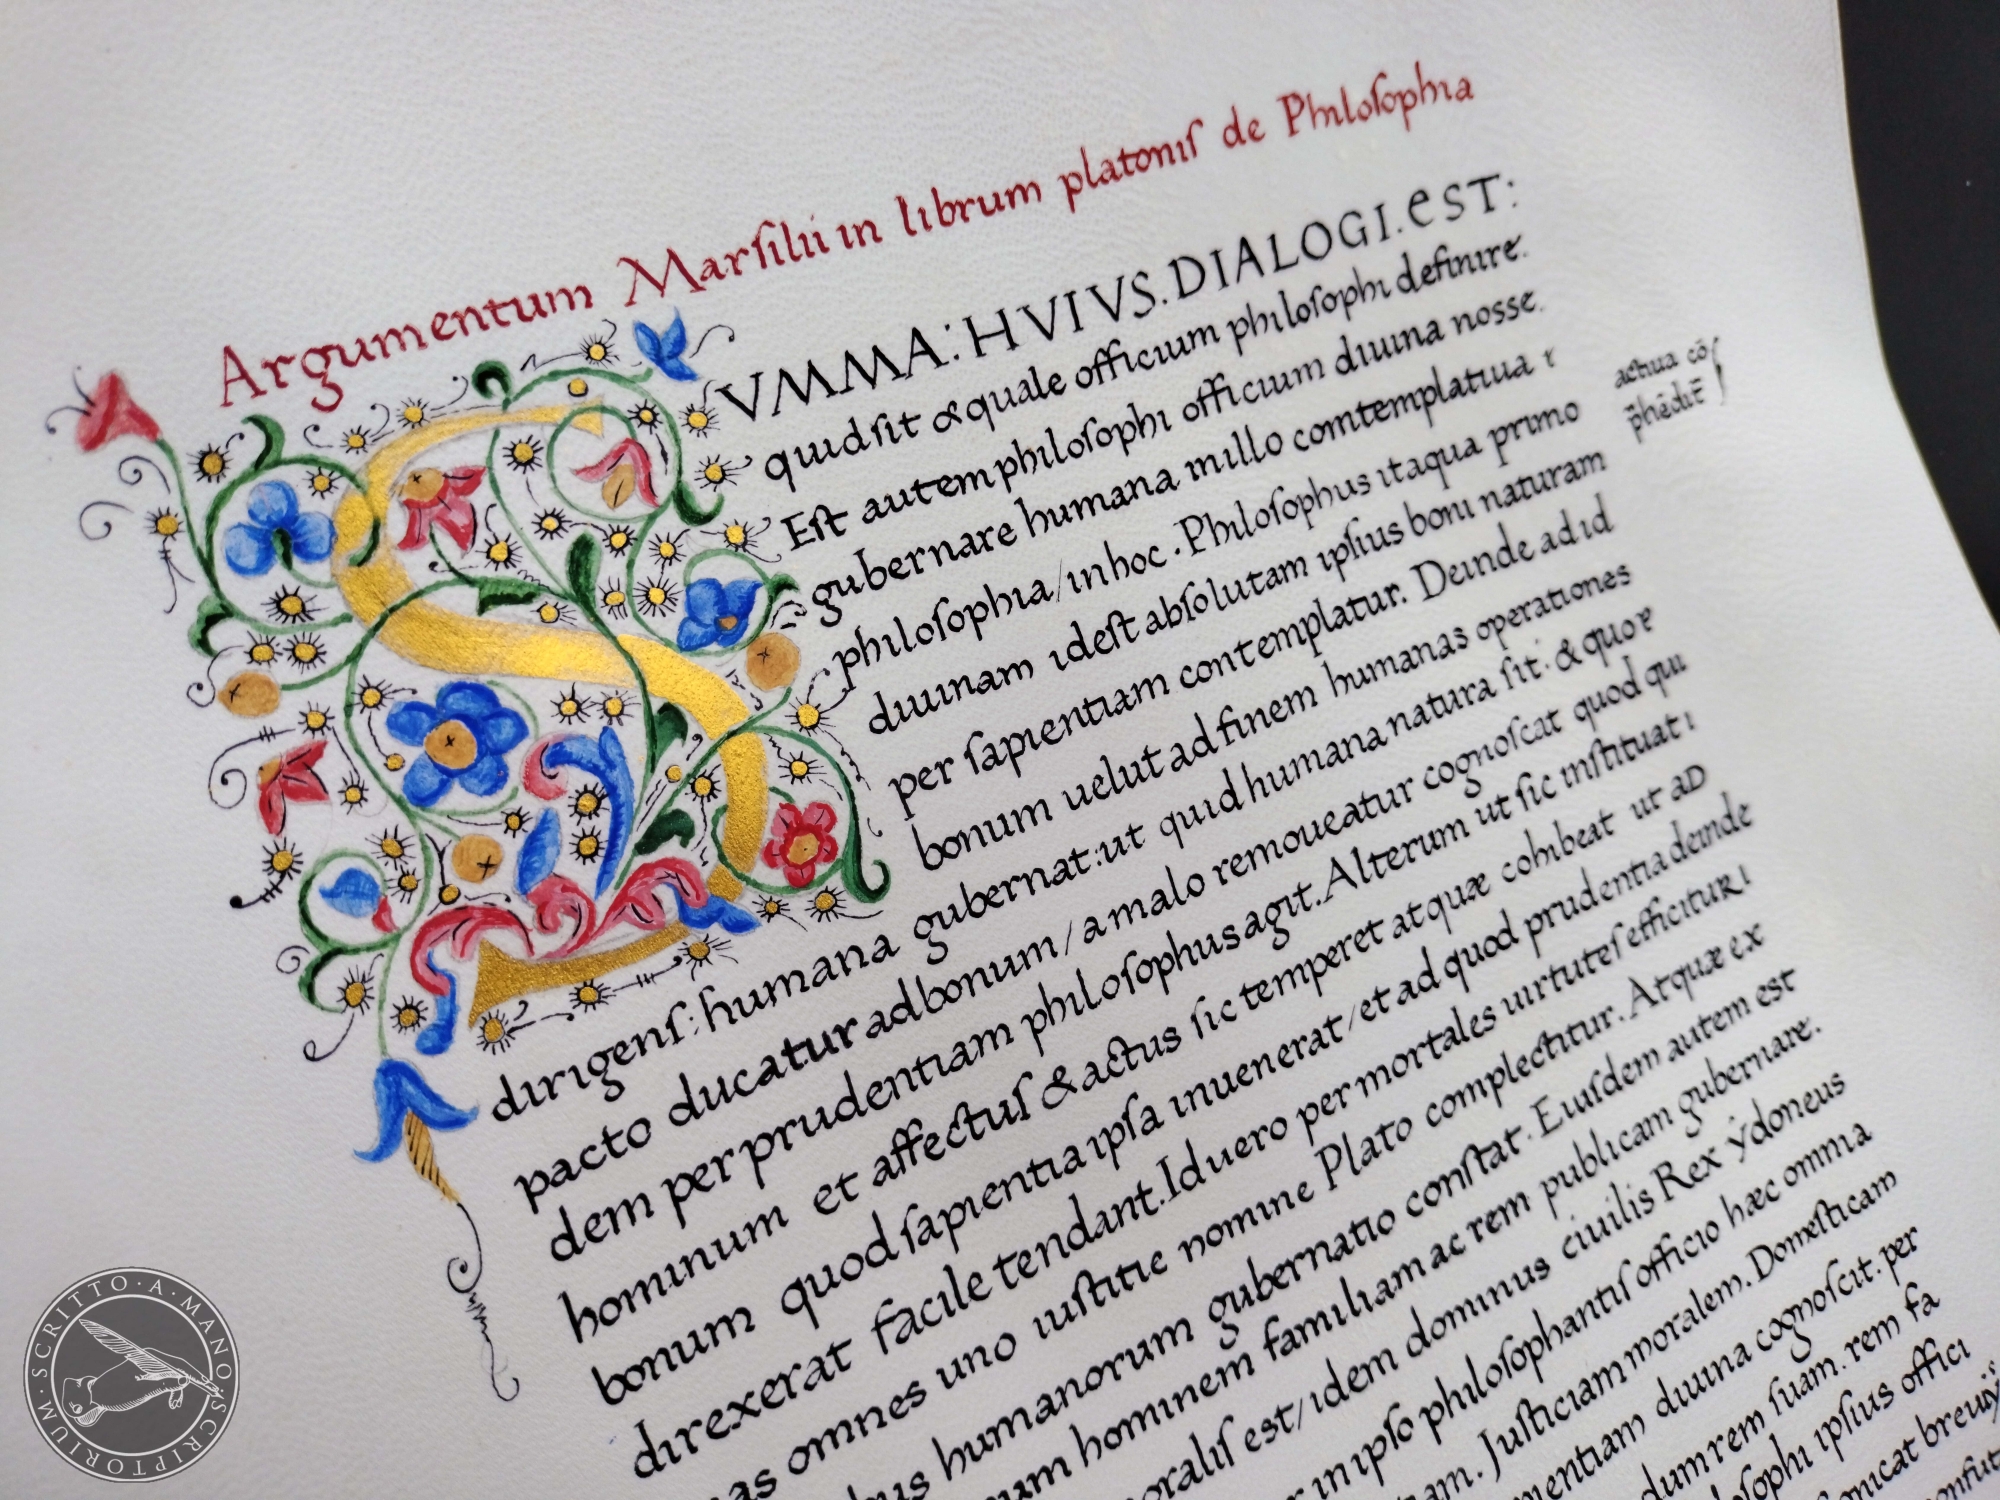 Argumentum Marſilii in librum platoniſ de Philoſophia
SVMMA: HVIVS. DIALOGI. eST:
quid ſit & quale officium philoſophi definire.
Eſt autem philoſophi officium diuina nosse.
gubernare humana in illo comtemplatiua
actiua cō
philoſophia / in hoc. Philoſophus itaqua primo
p̄hēdit̄
diuinam ideſt abſolutam ipſius boni naturam
per ſapientiam contemplatur. Deinde ad id
bonum uelut ad finem humanas operationes
gubernat: ut quid humana natura ſit. & quo
dirigenſ: humana a malo remoueatur cognoſcat quod qui
pacto ducatur ad bonum / Alterum ut ſic inſtituat
dem per prudentiam philoſophus agit. cohibeat ut aD
hominum et affectuſ & actus ſic temperet atquæ deinde
bonum quod ſapientia ipſa inuenerat / et ad quod prudentia
direxerat facile tendant. Id uero per mortales uirtuteſ efficitur
omnes uno iuſtitie nomine Plato complectitur. Atquæ ex
humanorum gubernatio conſtat. Eiuſdem autem est
hominem familiam ac rem publicam gubernare.
est / idem dominus ciuilis Rex ẏdoneus
in ipſo philoſophantiſ officio hæc omnia
Juſticiam moralem. Domeſticam
diuina cognoſcit. per
rem ſuam. rem fa
ipſius offici
SCRITTO · A · MANO · SCRIPTORIUM